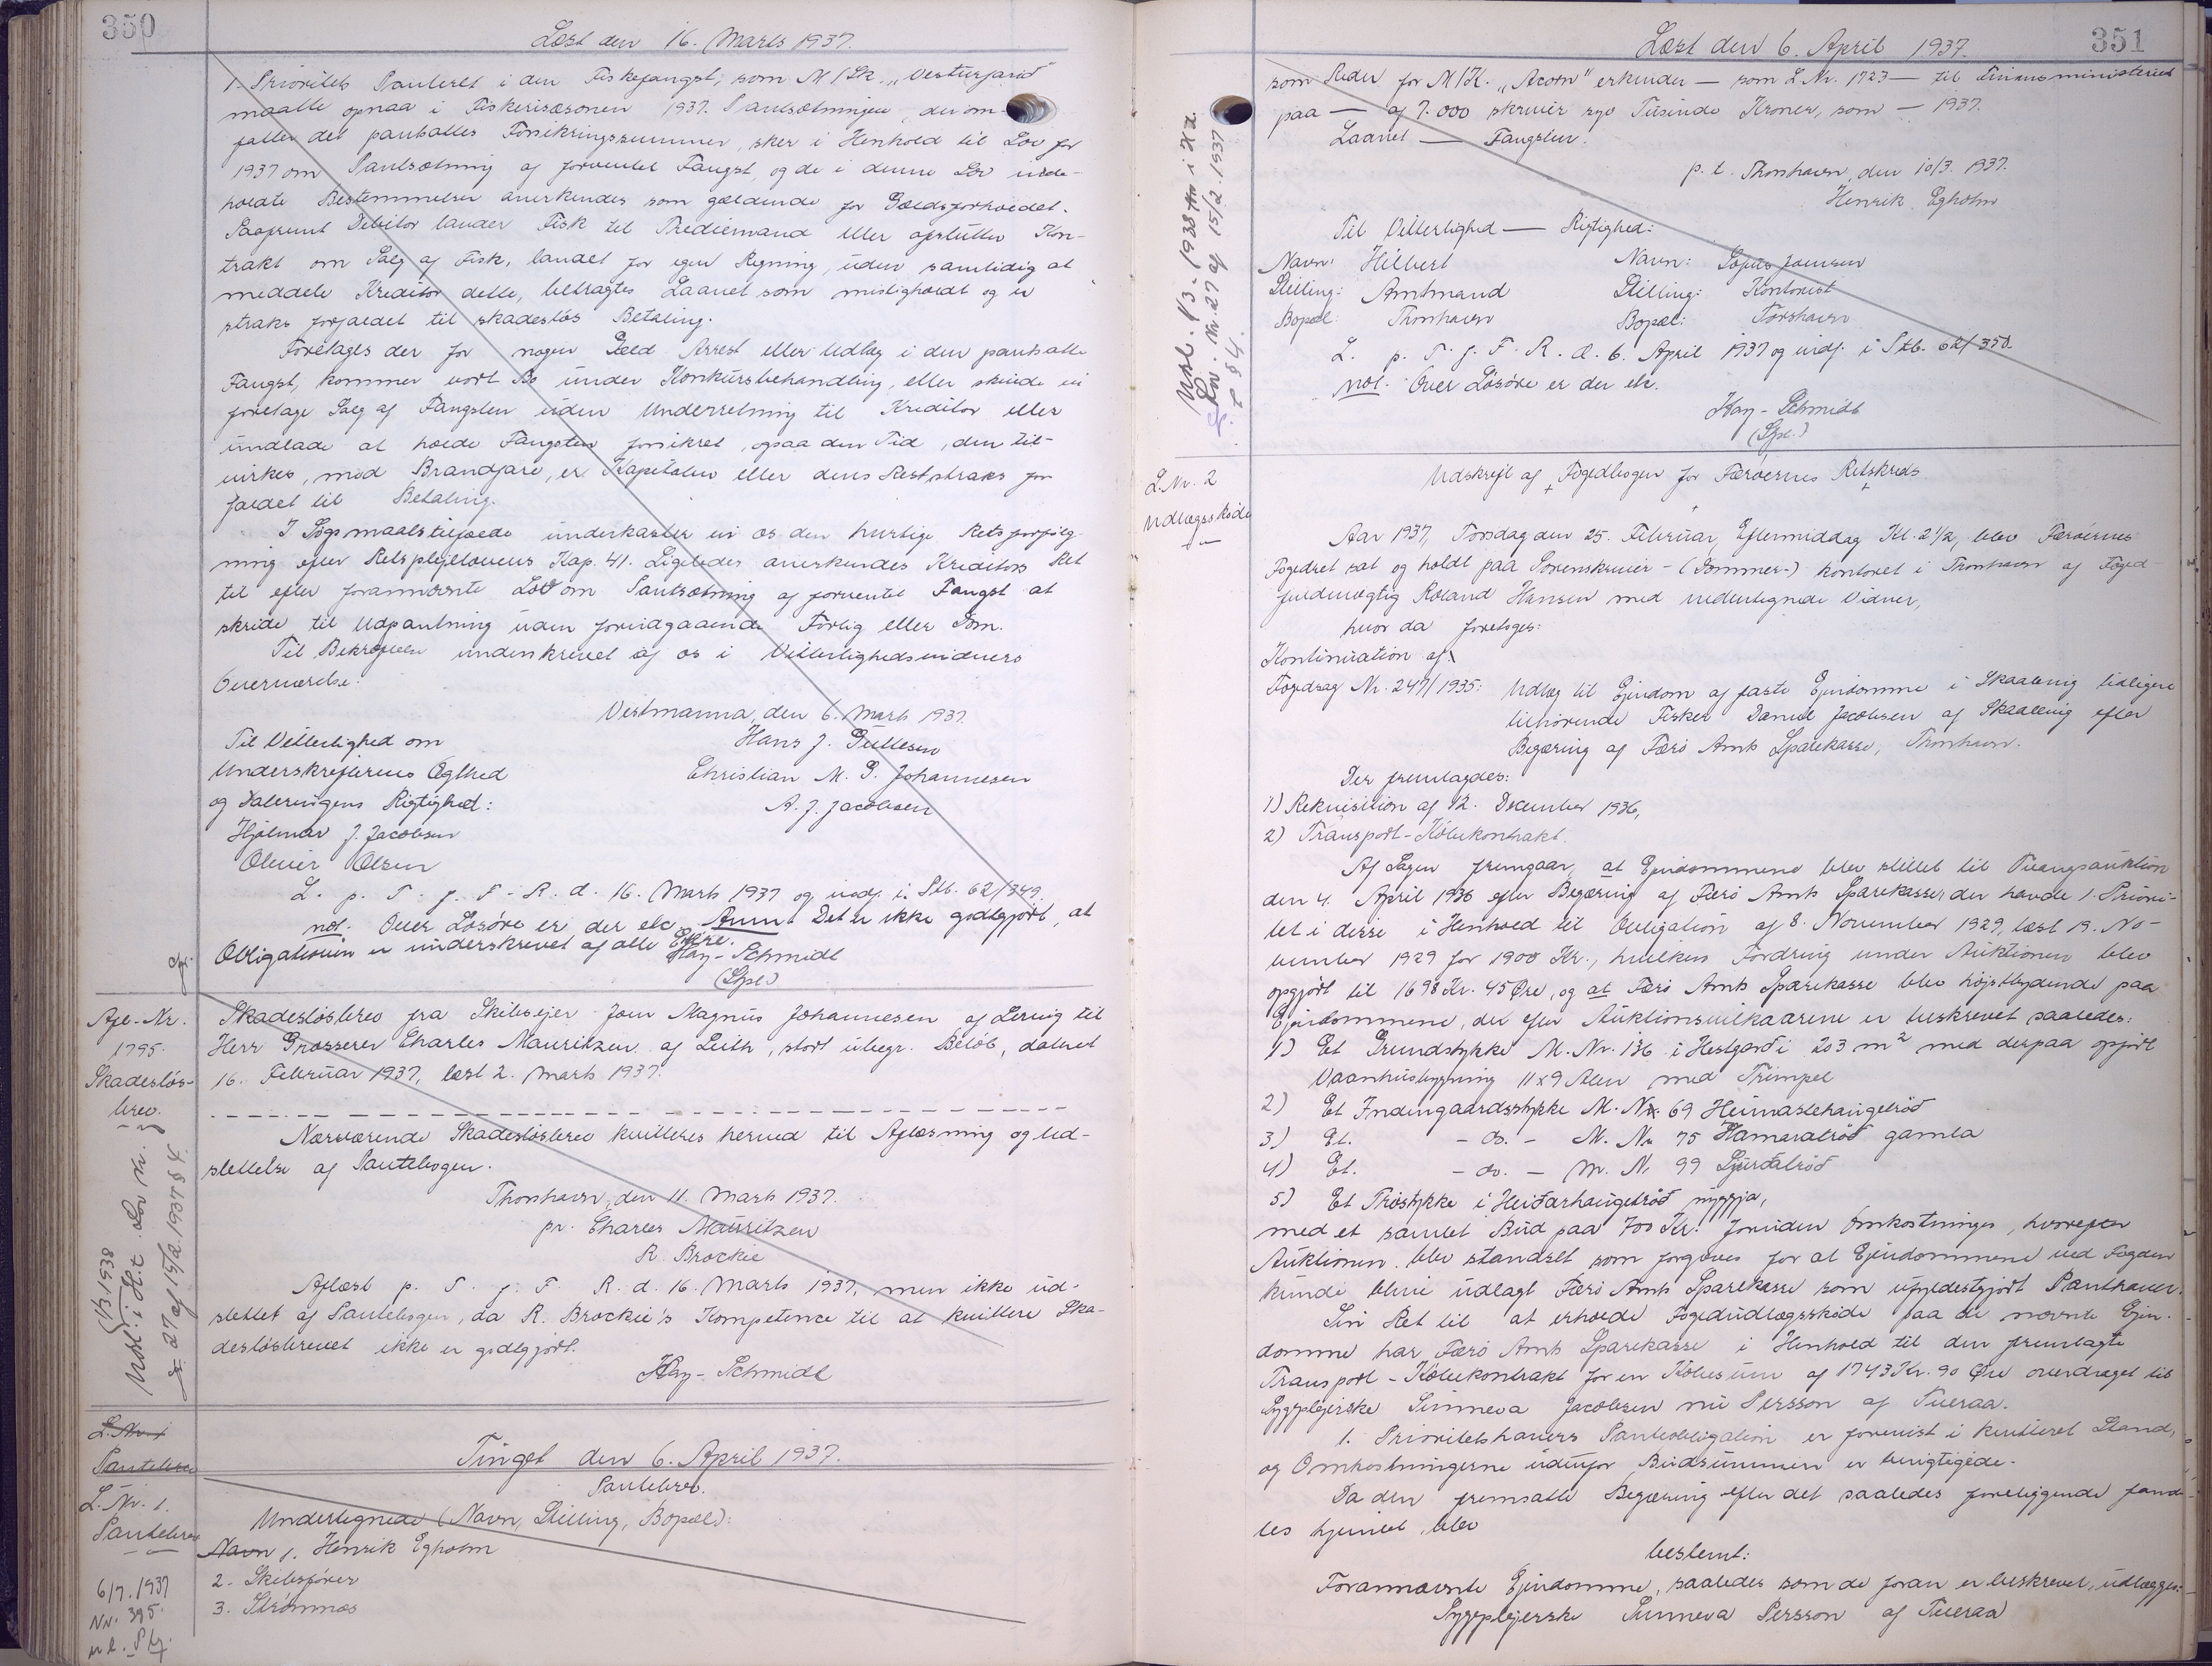 350
Læst den 16. Marts 1937.
1. Prioritets Panteret i den Fiskefangst, som M/Sk. „Vesturfarid"
maatte opnaa i Fiskerisæsonen 1937. Pantsætningen, der om-
fatter det pantsattes Forsikringssummer, sker i Henhold til Lov for
1937 om Pantsætning af forventet Fangst, og de i denne Lov inde-
holdte Bestemmelser anerkendes som gældende for Gældsforholdet.
Saafremt Debitor lander Fisk til Trediemand eller afslutter Kon-
trakt om Salg af Fisk, landet for egen Regning, uden samtidig at
meddele Kreditor dette, betragtes Laanet som misligholdt og er
straks forfaldet til skadesløs Betaling.
Foretages der for nogen Gæld Arrest eller Udlæg i den pantsatte
Fangst, kommer vort Bo under Konkursbehandling, eller skulde vi
foretage Salg af Fangsten uden Underretning til Kreditor eller
undlade at holde Fangsten forsikret, ogsaa den Tid, den til-
virkes, mod Brandfare, er Kapitalen eller dens Rest straks for
faldet til Betaling.
I Søgsmaalstilfælde underkaster vi os den hurtige Retsforfølg-
ning efter Retsplejelovens Kap. 41. Ligeledes anerkendes Kreditors Ret
til efter forannævnte Lov om Pantsætning af forventet Fangst at
skride til Udpantning uden forudgaaende Forlig eller Dom.
Til Bekræftelse underskrevet af os i Vitterlighedsvidners
Overværelse.
Vestmanna, den 6. Marts 1937.
Til Vitterlighed om
Hans J.
Underskrifternes Ægthed
Christian M. D. Johannesen
og Dateringens Rigtighed:
A. J. Jacobsen
Hjalmar J. Jacobsen
Oliver Olsen
L. p. T. f. F. R. d. 16. Marts 1937 og indf. i Ptb. 62/349.
not. Over Løsøre er der etc. Anm. Det er ikke godtgjort, at
Obligationen er underskrevet af alle Ejere.
Kay-Schmidt
(Spl.)
Afl.-Nr.
1795.
Skadesløs-
brev.
Skadesløsbrev fra Skibsejer Joen Magnus Johannesen af Lervig til
Herr Grosserer Charles Mauritzen af Leith, stort ubegr. Beløb, dateret
16. Februar 1937, læst 2. Marts 1937.
Nærværende Skadesløsbrev kvitteres herved til Aflæsning og Ud-
slettelse af Pantebogen.
Thorshavn, den 11. Marts 1937.
pr. Charles Mauritzen
R. Brockie
Aflæst p. T. f. F. R. d. 16. Marts 1937, men ikke ud-
slettet af Pantebogen, da R. Brockie's Kompetence til at kvittere Ska-
desløsbrevet ikke er godtgjort.
Kay-Schmidt
1/3 1938
Udsl. i H.t. Lov Nr.
27 af 15/2. 1937 § 4.
L. Nr. 1
Pantebrev
L. Nr. 1.
Pantebrev
Tinget den 6. April 1937.
Pantebrev.
Undertegnede (Navn, Stilling, Bopæl):
Navn 1. Henrik Egholm
2. Skibsfører
3. Strømnæs
6/7. 1937
Nr. 395.
351
Læst den 6. April 1937.
som Reder for M/K. „Acorn" erkender — som L. Nr. 1723 — til Finansministeriet
paa — af 7.000 skriver syv Tusinde Kroner, som — 1937.
Laanet — Fangsten.
p. t. Thorshavn, den 10/3. 1937.
Henrik Egholm
Til Vitterlighed — Rigtighed:
Navn: Hilbert Navn: Sofus Joensen
Stilling: Amtmand Stilling: Kontorist
Bopæl: Thorshavn Bopæl: Torshavn
L. p. T. f. F. R. d. 6. April 1937 og indf. i Ptb. 62/350.
not. Over Løsøre er der etc.
Kay-Schmidt
(Spl.)
Udsl. 1/3. 1938 i H.t.
Lov. Nr. 27 af 15/2. 1937
§ 4.
L. Nr. 2
Udlægsskøde
Udskrift af Fogedbogen for Færøernes Retskreds
Aar 1937, Torsdag den 25. Februar, Eftermiddag Kl. 2 1/2, blev Færøernes
Fogedret sat og holdt paa Sorenskriver-(Dommer-) kontoret i Thorshavn af Foged-
fuldmægtig Roland Hansen med undertegnede Vidner,
hvor da foretoges:
Kontinuation af
Fogedsag Nr. 247/1935: Udlæg til Ejendom af faste Ejendomme i Skaalevig tidligere
tilhørende Fisker Daniel Jacobsen af Skaalevig efter
Begæring af Færø Amts Sparekasse, Thorshavn.
Der fremlagdes:
1) Rekvisition af 12. December 1936,
2) Transport-Købekontrakt.
Af Sagen fremgaar, at Ejendommene blev stillet til Tvangsauktion
den 4. April 1936 efter Begæring af Færø Amts Sparekasse, der havde 1. Priori-
tet i disse i Henhold til Obligation af 8. November 1929, læst 19. No-
vember 1929 for 1900 Kr., hvilken Fordring under Auktionen blev
opgjort til 1698 Kr. 45 Øre, og at Færø Amts Sparekasse blev højstbydende paa
Ejendommene, der efter Auktionsvilkaarene er beskrevet saaledes:
1) Et Grundstykke M. Nr. 136 i Hestgerði 203 m² med derpaa opført
Vaaningshusbygning 11 x 9 Alen med Trimpel
2) Et Indengaardsstykke M. Nr. 69 Heimastehaugetrøð
3) Et. - do. - M. Nr. 75 Hamaratrøð gamla
4) Et. - do. - M. Nr. 99 Gjurdatrøð
5) Et Trøstykke i Heiðarhaugetrøð nyggja,
med et samlet Bud paa 700 Kr. foruden Omkostninger, hvorefter
Auktionen blev standset som forgæves for at Ejendommene ved Fogden
kunde blive udlagt Færø Amts Sparekasse som ufyldestgjort Panthaver.
Sin Ret til at erholde Fogedudlægsskøde paa de nævnte Ejen-
domme har Færø Amts Sparekasse i Henhold til den fremlagte
Transport-Købekontrakt for en Købesum af 1743 Kr. 90 Øre overdraget til
Sygeplejerske Sunneva Jacobsen nu Persson af Tveraa.
1. Prioritetshavers Panteobligation er forevist i kvitteret Stand,
og Omkostningerne udenfor Budsummen er berigtigede.
Da den fremsatte Begæring efter det saaledes foreliggende fand-
tes hjemlet, blev
bestemt:
Forannævnte Ejendomme, saaledes som de foran er beskrevet, udlægges:
Sygeplejerske Sunneva Persson af Tveraa